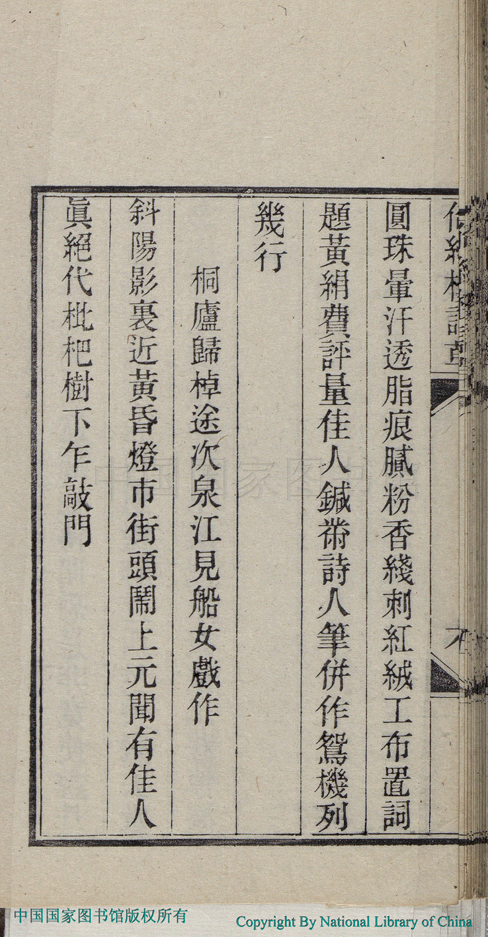 圓珠暈汗透脂痕膩粉香綫刺紅絨工布置詞
題黃絹費評量佳人鍼術詩人筆併作鴛機列
幾行
桐廬歸棹途次泉江見船女戲作
斜陽影裏近黃昏燈市街頭鬧上元聞有佳人
眞絕代枇杷樹下乍敲門
中国国家图书馆版权所有
Copyright By National Library of China